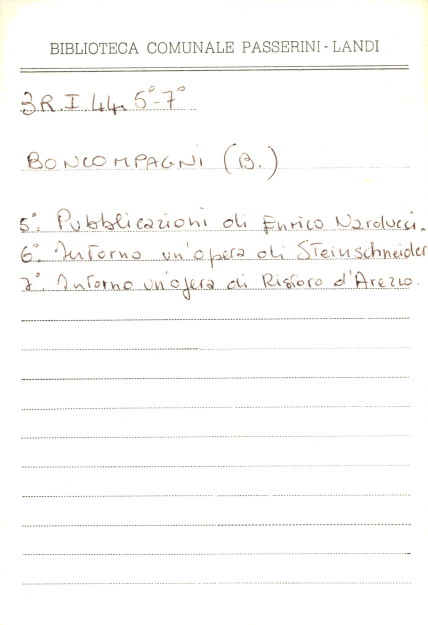 BIBLIOTECA COMUNALE PASSERINI - LANDI
3R.I.44. 5°-7°
BONCOMPAGNI (B.)
5°. Pubblicazioni di Enrico Narducci.
6°. Intorno un'opera di Steinschneider
7°. Intorno un'opera di Ristoro d'Arezzo.